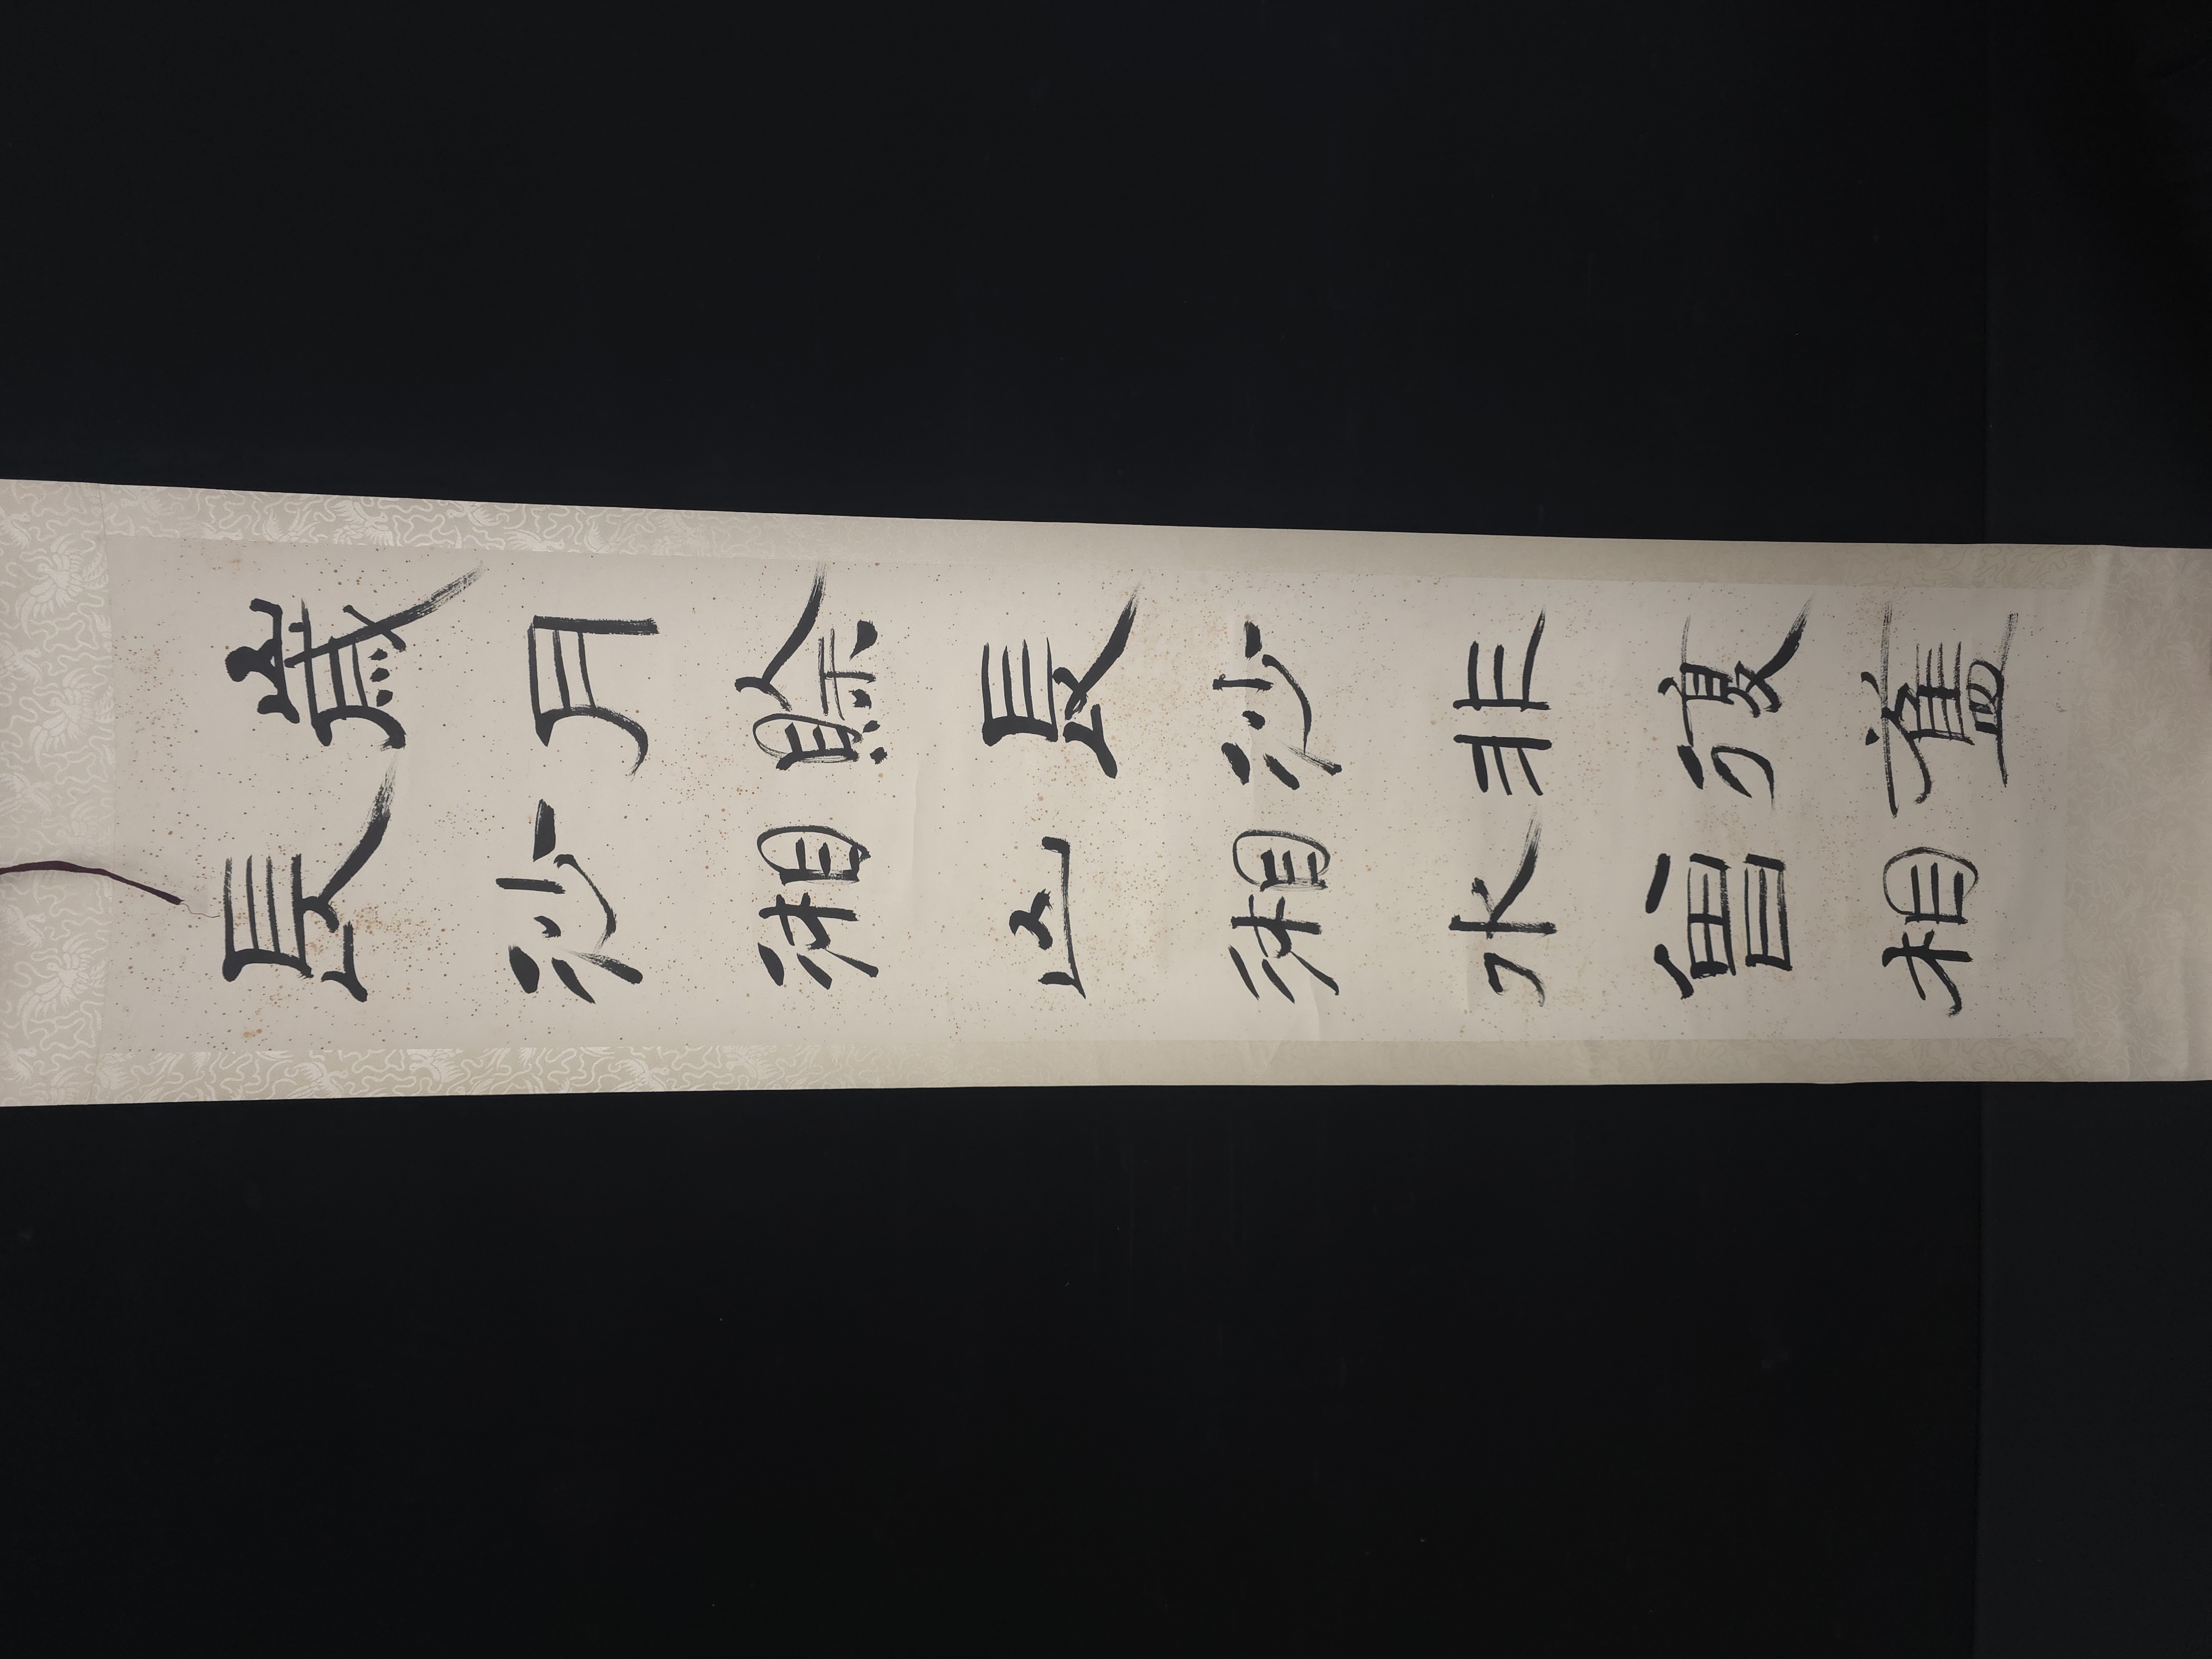 歲月賒長沙非復舊
長沙湘山湘水曾相